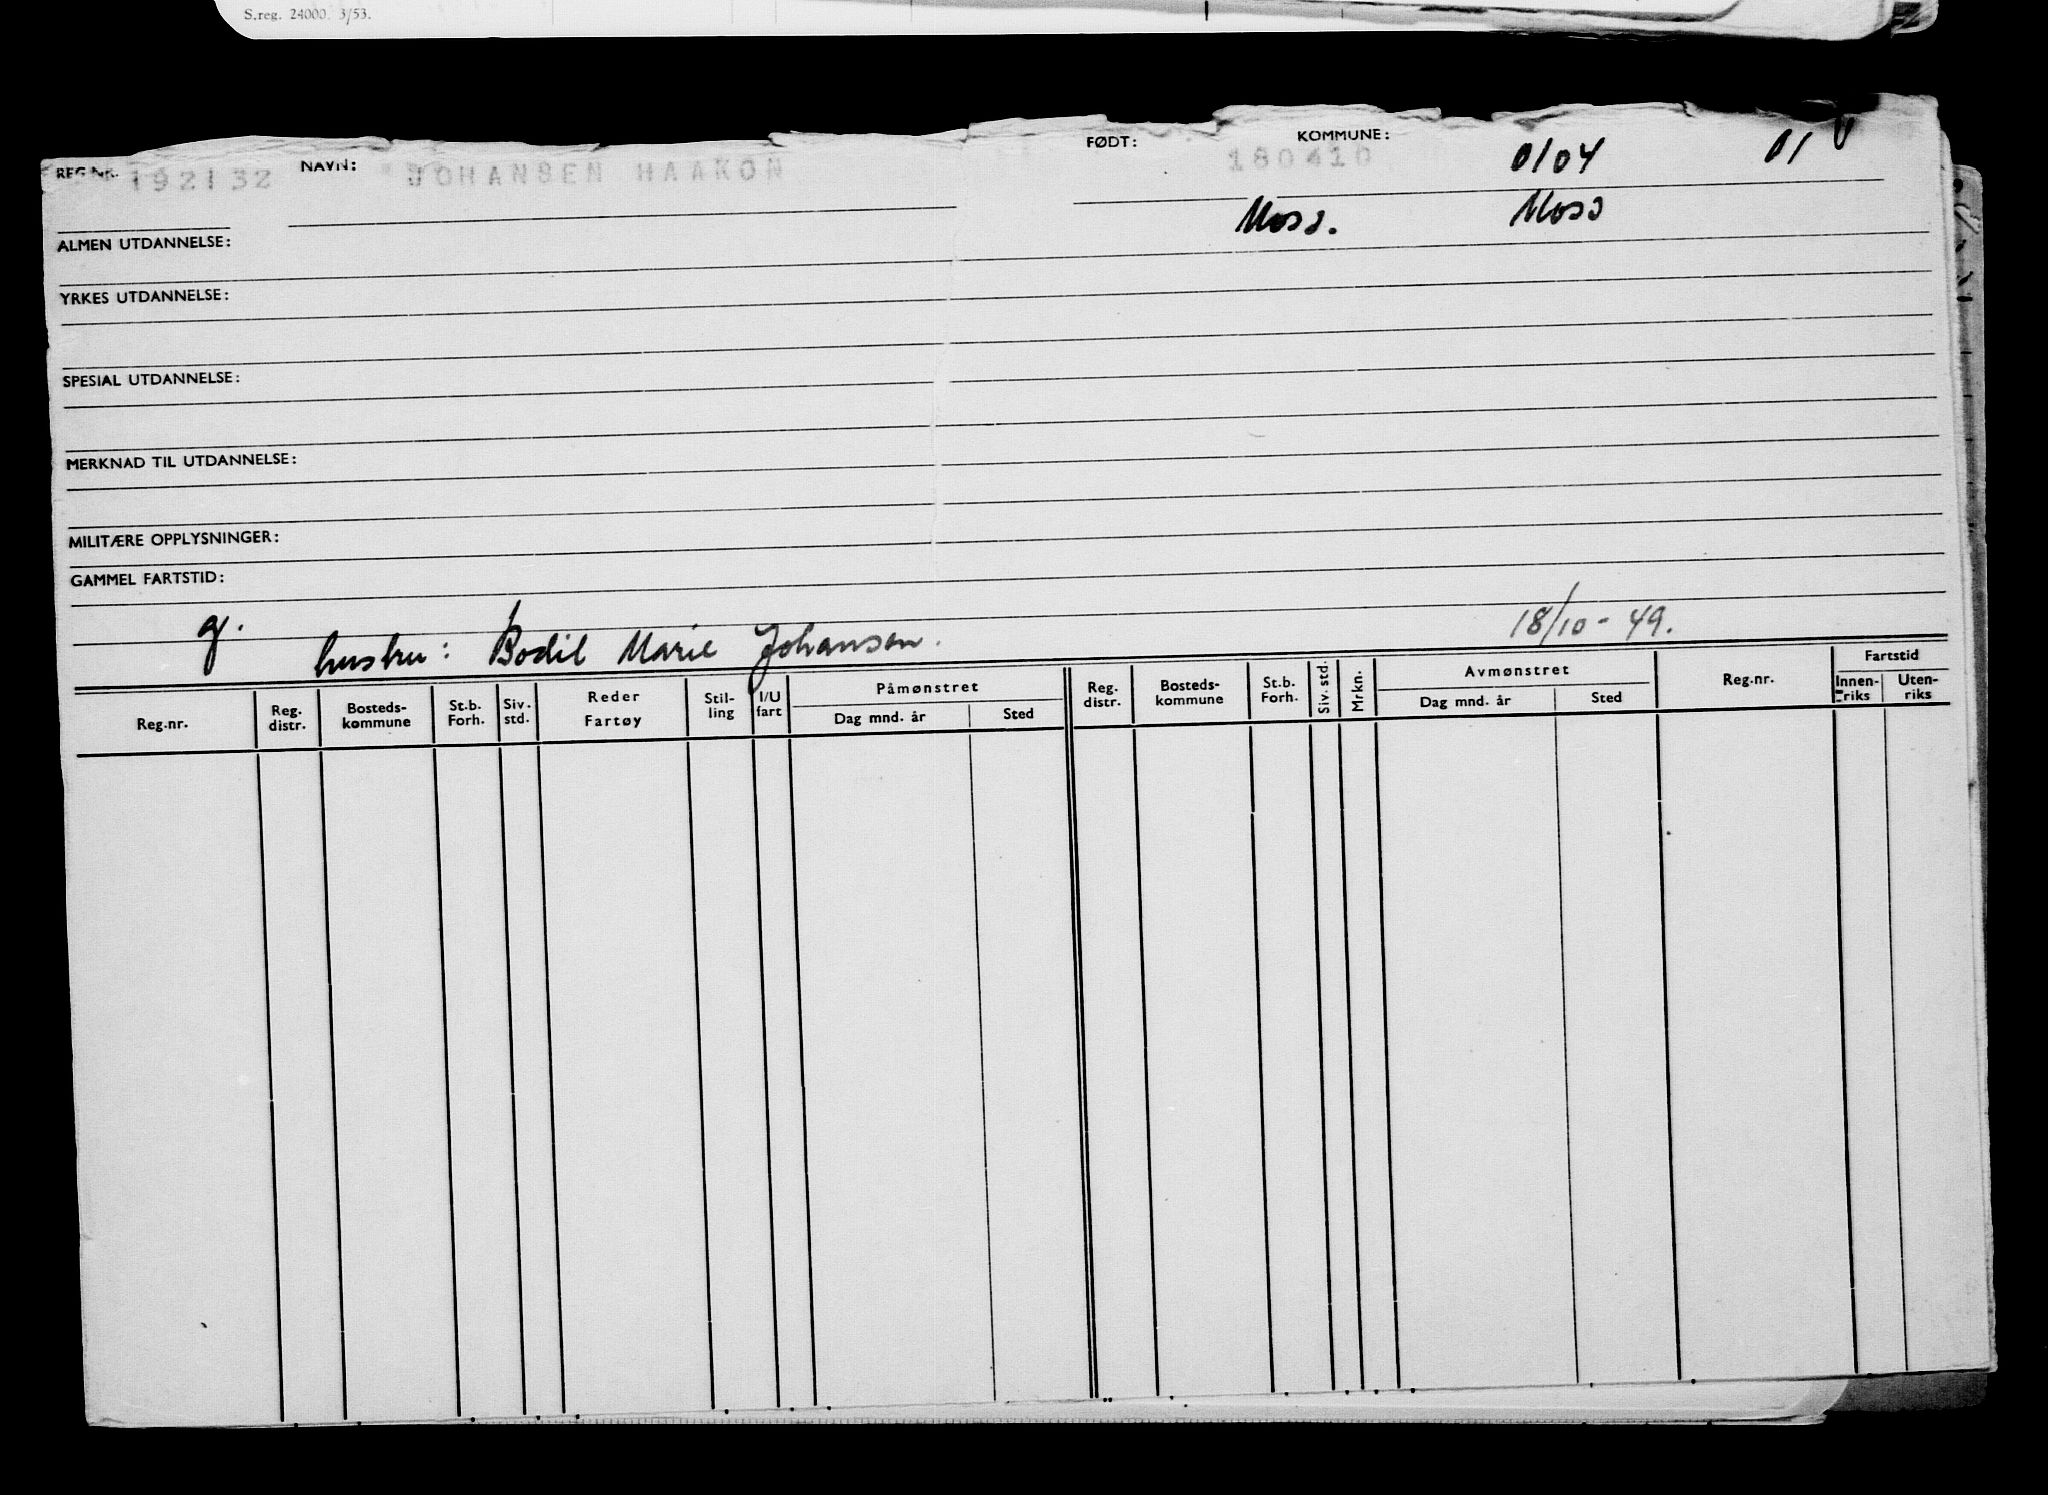 S.reg. 24000. 3/53.
REG.NR. 192132 NAVN: JOHANSEN HAAKON FØDT: 180410 KOMMUNE: 0104 01
Moss. Moss
ALMEN UTDANNELSE:
YRKES UTDANNELSE:
SPESIAL UTDANNELSE:
MERKNAD TIL UTDANNELSE:
MILITÆRE OPPLYSNINGER:
GAMMEL FARTSTID:
g. hustru: Bodil Marie Johansen. 18/10-49.
Reg.nr. Reg. distr. Bosteds-kommune St.b. Forh. Siv. std. Reder Fartøy Stil-ling I/U fart Påmønstret Dag mnd. år Sted Reg. distr. Bosteds-kommune St.b. Forh. Siv. std. Mrkn. Avmønstret Dag mnd. år Sted Reg.nr. Fartstid Innen-riks Uten-riks